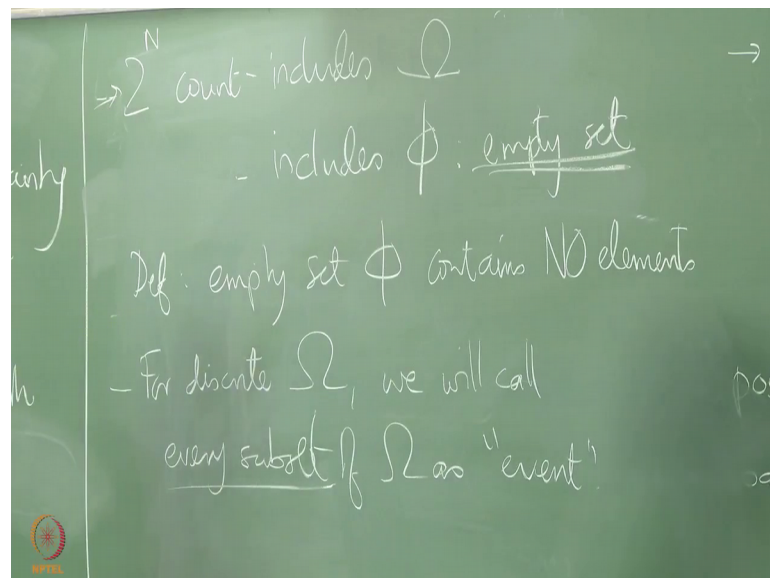 → 2^N count-includes Ω
- includes ϕ : empty set
Def: empty set ϕ contains NO elements
- For discrete Ω, we will call
every subset of Ω as "event"
NPTEL